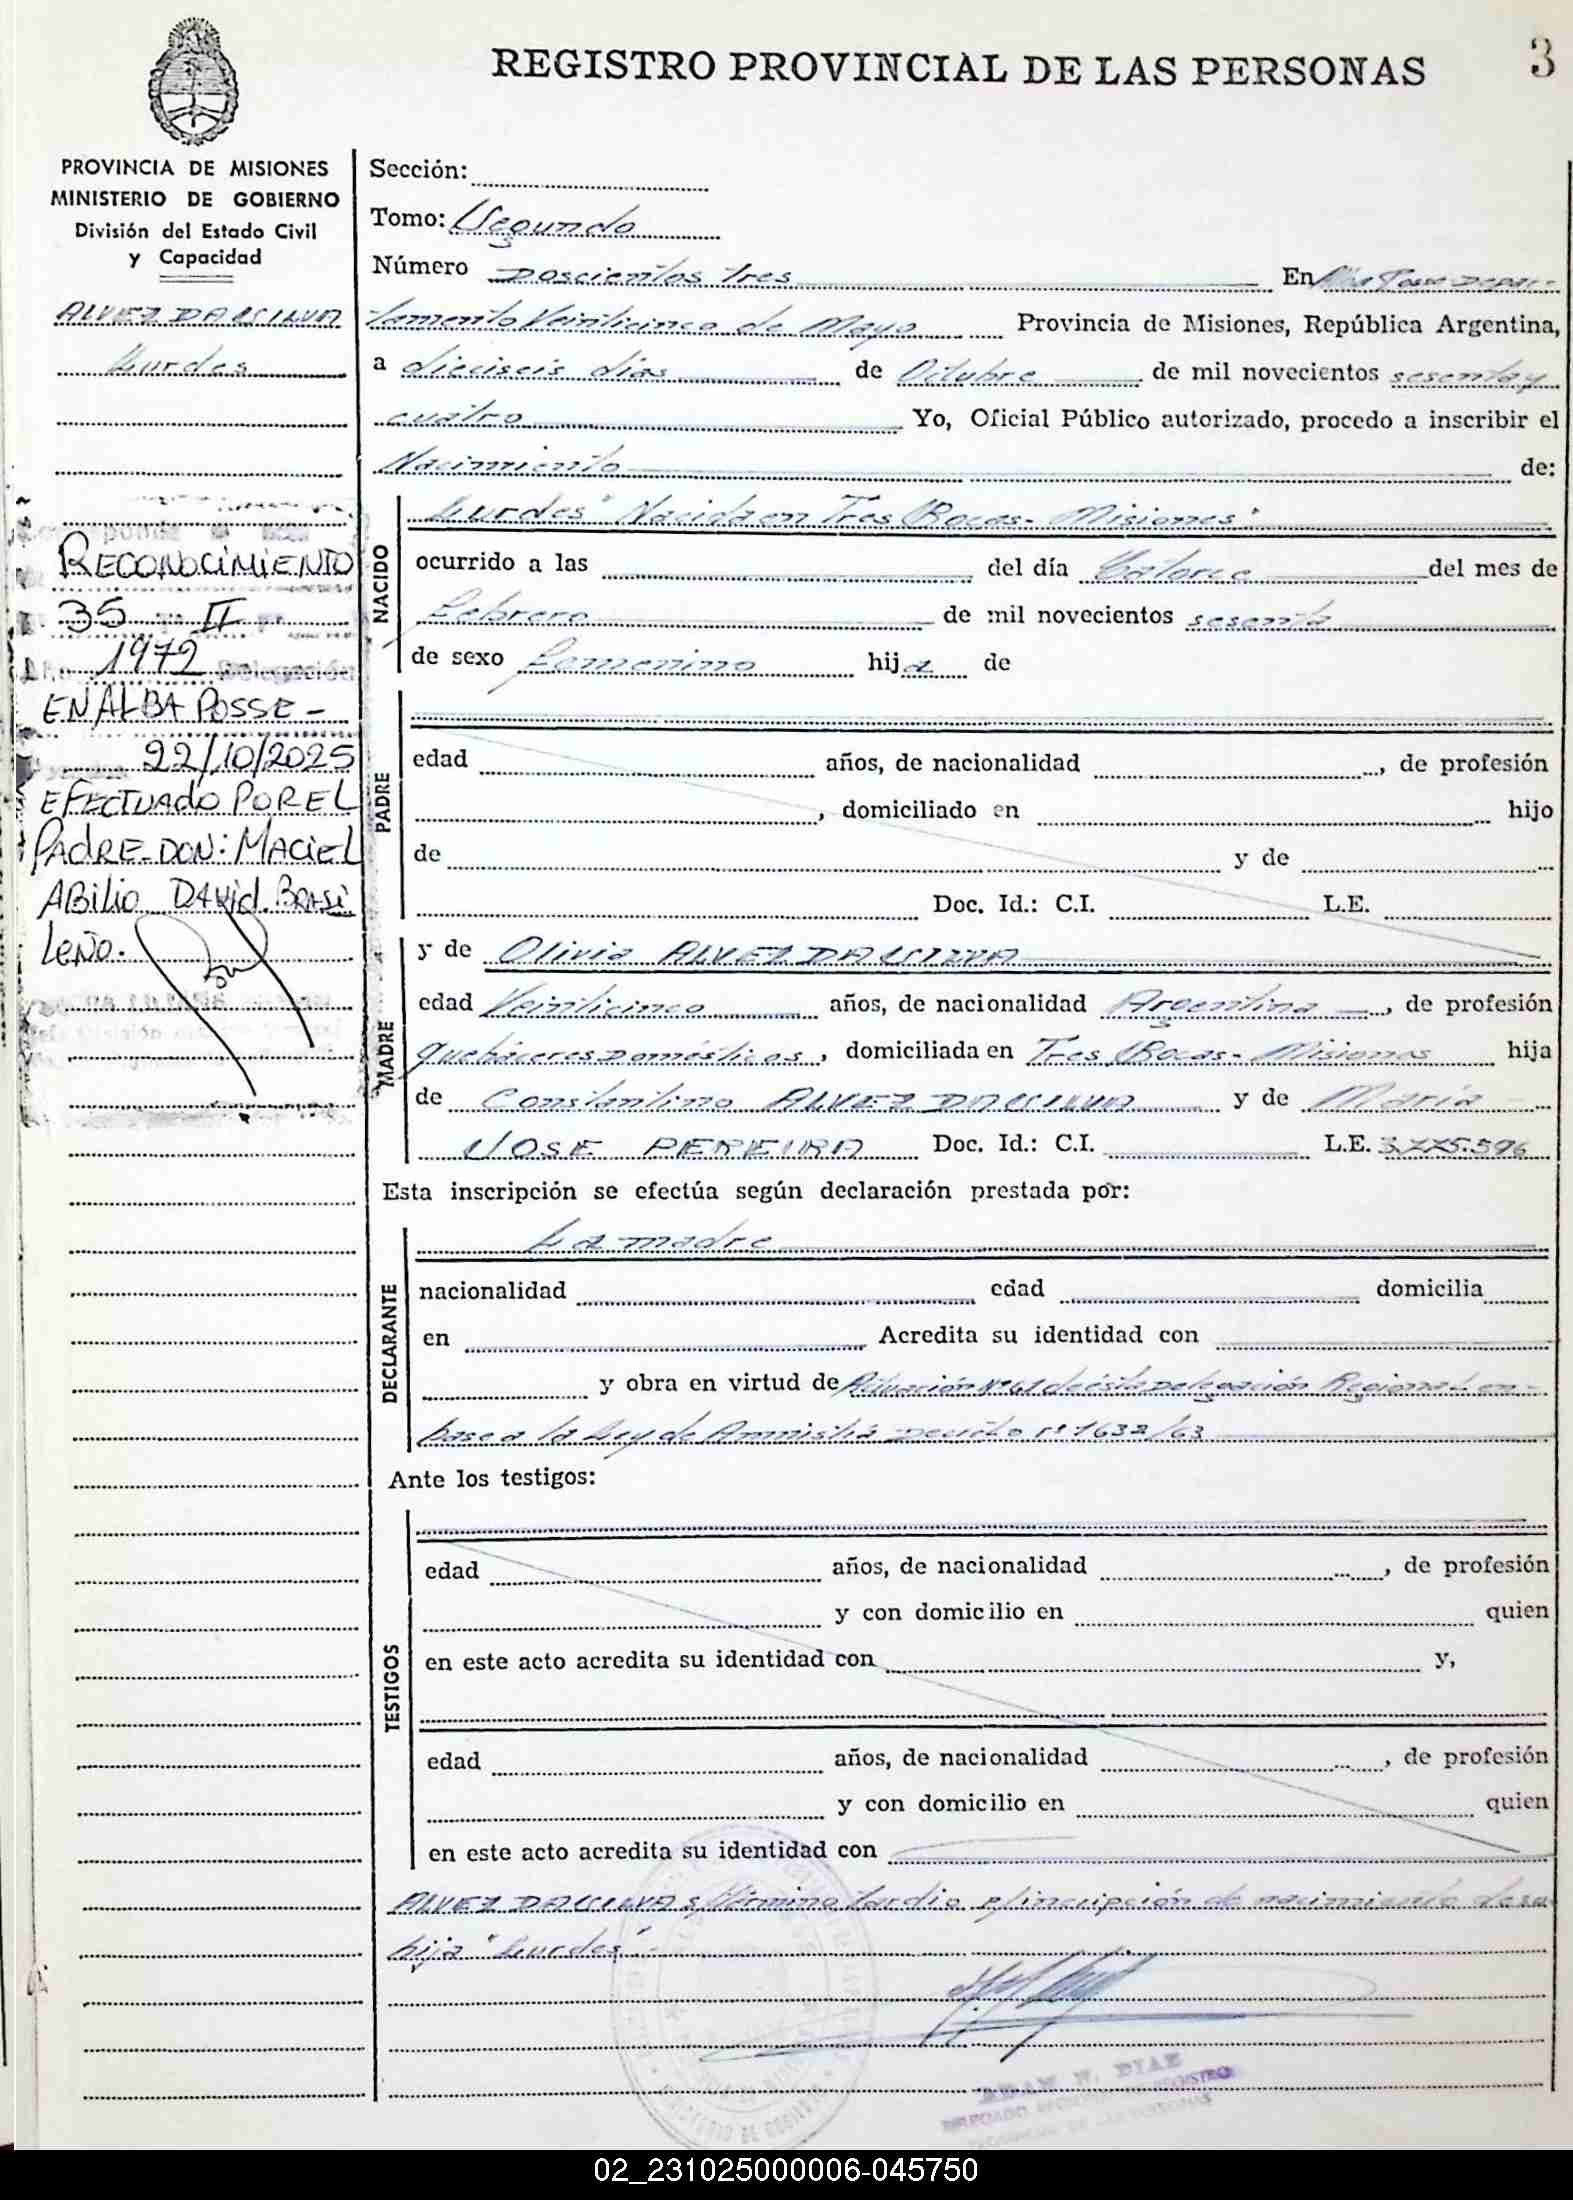 REGISTRO PROVINCIAL DE LAS PERSONAS
3
PROVINCIA DE MISIONES
MINISTERIO DE GOBIERNO
División del Estado Civil
y Capacidad
ALVEZ DA SILVA
Lurdes
RECONOCIMIENTO
35 II
1972
EN ALBA POSSE -
22/10/2025
EFECTUADO POR EL
PADRE-DON: MACIEL
ABILIO DAVID. BRASI
LEÑO.
Sección:
Tomo: Segundo
Número Doscientos tres En Alba Posse Depar-
tamento Veinticinco de Mayo Provincia de Misiones, República Argentina,
a dieciseis dias de Octubre de mil novecientos sesenta y
cuatro Yo, Oficial Público autorizado, procedo a inscribir el
Nacimiento de:
NACIDO
Lurdes" Nacida en Tres Bocas- Misiones"
ocurrido a las del día Catorce del mes de
febrero de mil novecientos sesenta
de sexo femenino hija de
PADRE
edad años, de nacionalidad , de profesión
, domiciliado en hijo
de y de
Doc. Id.: C.I. L.E.
MADRE
y de Olivia ALVEZ DA SILVA
edad Veinticinco años, de nacionalidad Argentina , de profesión
quehaceres Domésticos, domiciliada en Tres Bocas- Misiones hija
de Constantino ALVEZ DA SILVA y de María
JOSE PEREIRA Doc. Id.: C.I. L.E. 3.775.596
Esta inscripción se efectúa según declaración prestada por:
DECLARANTE
La madre
nacionalidad edad domicilia
en Acredita su identidad con
y obra en virtud de Actuación Nº61 de ésta Delegación Regional en
base a la Ley de Amnistiá Decreto nº 1632/63
Ante los testigos:
TESTIGOS
edad años, de nacionalidad , de profesión
y con domicilio en quien
en este acto acredita su identidad con y,
edad años, de nacionalidad , de profesión
y con domicilio en quien
en este acto acredita su identidad con
ALVEZ DA SILVA s/término tardio p/incripción de nacimiento de su
hija "Lurdes"-
ADAM N. DIAZ
DELEGADO REGIONAL DE REGISTRO
DE LAS PERSONAS
02_231025000006-045750